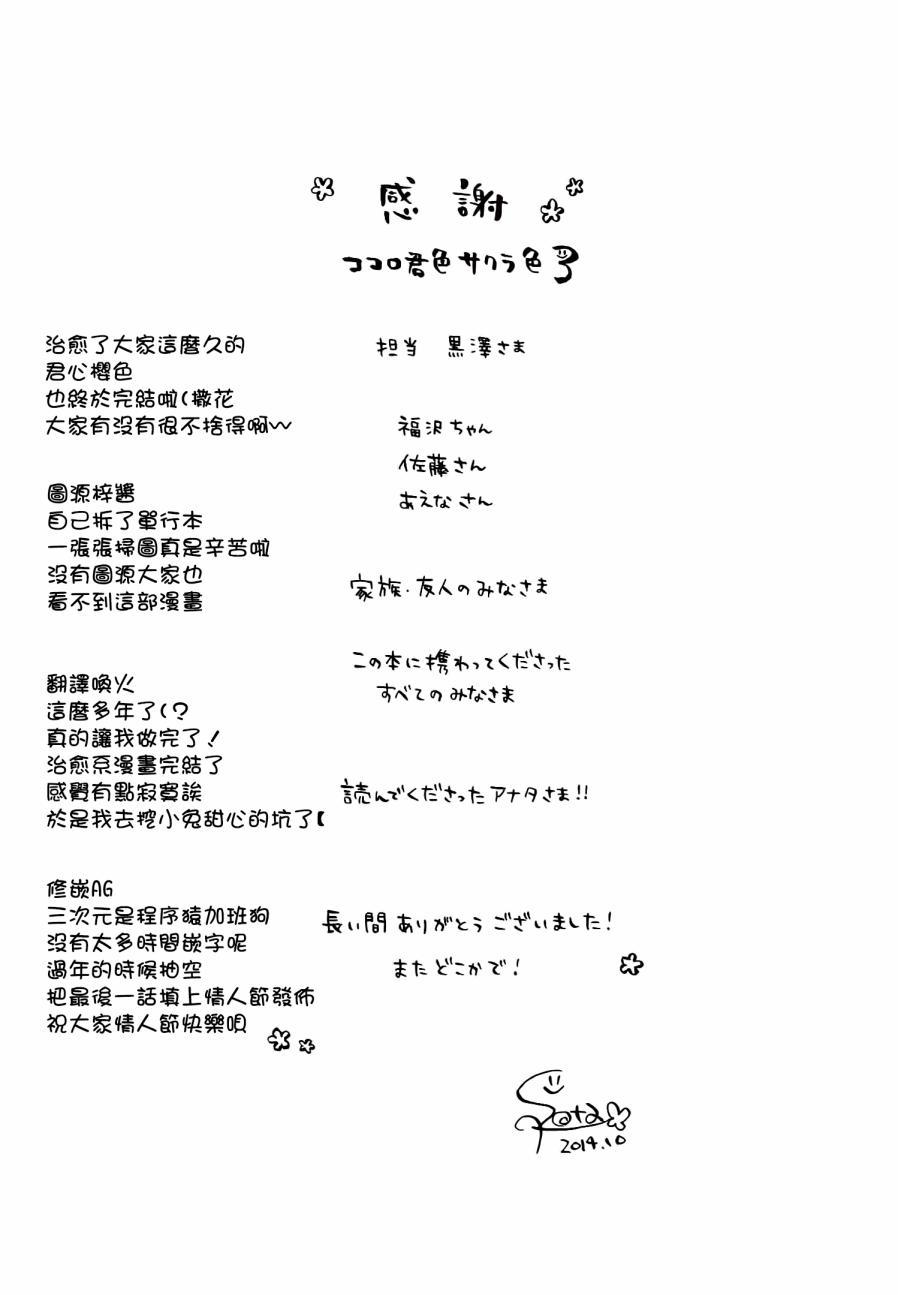 感 謝
ココロ君色サクラ色3
治愈了大家這麼久的
君心櫻色
也終於完結啦(撒花
大家有沒有很不捨得啊~
圖源梓醬
自己拆了單行本
一張張掃圖真是辛苦啦
沒有圖源大家也
看不到這部漫畫
翻譯喚火
這麼多年了(?
真的讓我做完了!
治愈系漫畫完結了
感覺有點寂寞誒
於是我去挖小兔甜心的坑了【
修嵌AG
三次元是程序猿加班狗
沒有太多時間嵌字呢
過年的時候抽空
把最後一話填上情人節發佈
祝大家情人節快樂唄
担当 黒澤さま
福沢ちゃん
佐藤さん
あえなさん
家族・友人のみなさま
この本に携わってくださった
すべてのみなさま
読んでくださったアナタさま!!
長い間ありがとうございました!
またどこかで!
2014.10